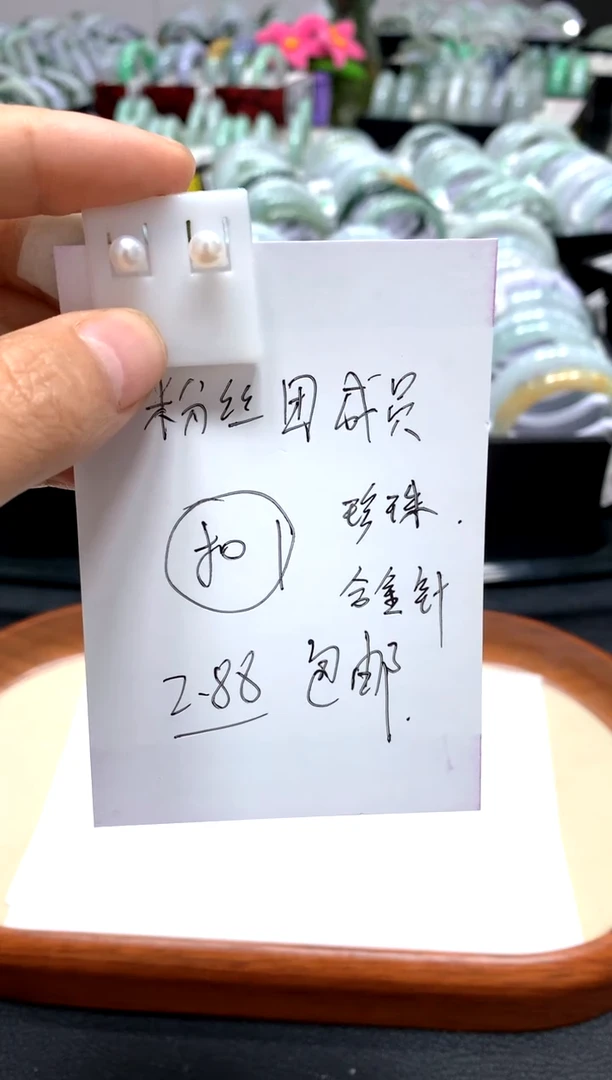 粉丝团成员
扣1
珍珠.
合金针
2.88 包邮.